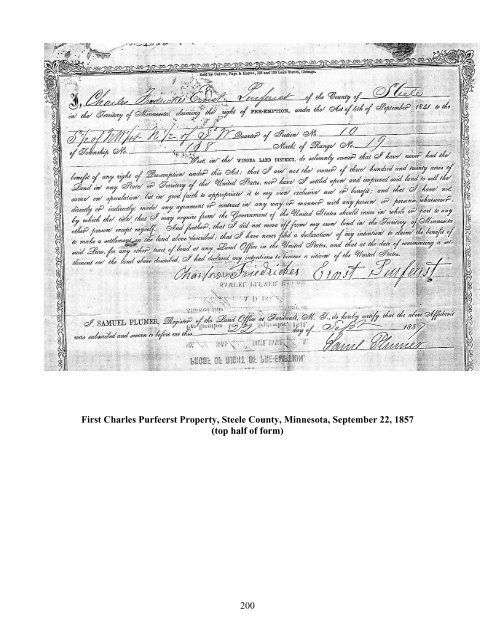 Sold by Culver, Page & Hoyne, 128 and 130 Lake Street, Chicago.
I, Charles Friedrickes Ernst Purfeerst of the County of Steele
in the Territory of Minnesota, claiming the right of PRE-EMPTION, under the Act of 4th of September 1841 to the
S ½ of NW ¼ & N ½ of S W Quarter of Section No. 10
of Township No. 108 North, of Range No. 19
West, in the WINONA LAND DISTRICT, do solemnly swear that I have never had the
benefit of any right of Pre-emption under this Act; that I am not the owner of three hundred and twenty acres of
Land in any State or Territory of the United States, nor have I settled upon and improved said land to sell the
same on speculation, but in good faith to appropriate it to my own exclusive use or benefit; and that I have not
directly or indirectly, made any agreement or contract in any way or manner with any person or persons whatsoever,
by which the title that I may acquire from the Government of the United States should inure in whole or part to any
other person except myself. And further, that I did not move off from my own land in the Territory of Minnesota
to make a settlement on the land above described; that I have never filed a declaration of my intention to claim the benefit of
said Law, for any other tract of land at any Land Office in the United States, and that at the date of commencing a set-
tlement on the land above described, I had declared my intentions to become a citizen of the United States.
Charles Friedrickes Ernst Purfeerst
I, SAMUEL PLUMER, Register of the Land Office at Faribault, M. T., do hereby certify that the above Affidavit
was subscribed and sworn to before me this 22d day of Sept 1857
Saml Plumer
PROOF OF RIGHT OF PRE-EMPTION
First Charles Purfeerst Property, Steele County, Minnesota, September 22, 1857
(top half of form)
200